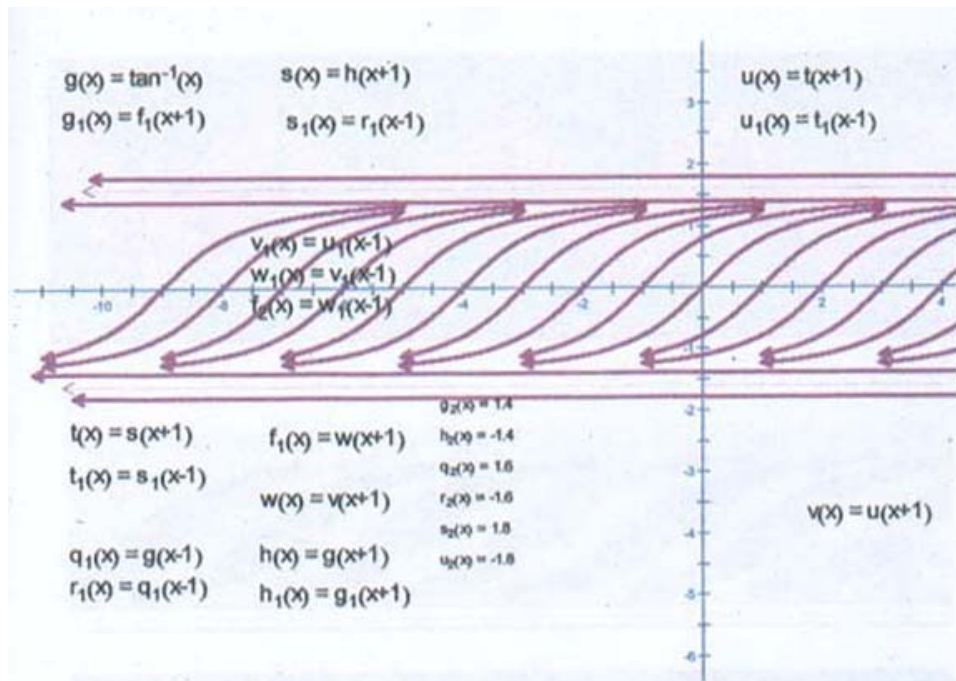 g(x) = tan⁻¹(x)
g₁(x) = f₁(x+1)
s(x) = h(x+1)
s₁(x) = r₁(x-1)
u(x) = t(x+1)
u₁(x) = t₁(x-1)
v₁(x) = u₁(x-1)
w₁(x) = v₁(x-1)
f₂(x) = w₁(x-1)
3
2
1
-10
-8
-4
-2
2
4
-1
-2
-3
-4
-5
-6
t(x) = s(x+1)
t₁(x) = s₁(x-1)
q₁(x) = g(x-1)
r₁(x) = q₁(x-1)
f₁(x) = w(x+1)
w(x) = v(x+1)
h(x) = g(x+1)
h₁(x) = g₁(x+1)
g₂(x) = 1.4
h₂(x) = -1.4
q₂(x) = 1.6
r₂(x) = -1.6
s₂(x) = 1.8
u₂(x) = -1.8
v(x) = u(x+1)